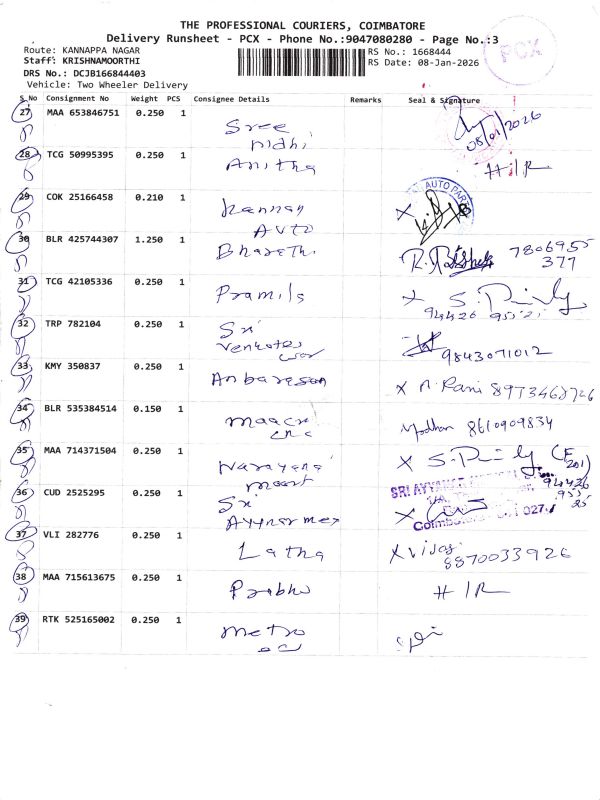 THE PROFESSIONAL COURIERS, COIMBATORE
Delivery Runsheet - PCX - Phone No.:9047080280 - Page No.:3
PCX
Route: KANNAPPA NAGAR
RS No.: 1668444
Staff: KRISHNAMOORTHI
RS Date: 08-Jan-2026
DRS No.: DCJB166844403
Vehicle: Two Wheeler Delivery
S.No Consignment No Weight PCS Consignee Details Remarks Seal & Signature
27 MAA 653846751 0.250 1 Sree
nidhi
08/01/2026
28 TCG 50995395 0.250 1 Anitha H/R
29 COK 25166458 0.210 1 Kannan
Auto
AUTO PAR
30 BLR 425744307 1.250 1 Bharathi 7806955
377
31 TCG 42105336 0.250 1 Pramila X
94426 95525
32 TRP 782104 0.250 1 Sri
Venkates
9843071012
33 KMY 350837 0.250 1 Anbaresan X R. Rani
34 BLR 535384514 0.150 1 8610909834
35 MAA 714371504 0.250 1 Narayana X (F
201)
94426
955
25
36 CUD 2525295 0.250 1 Sri
X
SRI AYYANAR
Coimbatore 027
37 VLI 282776 0.250 1 Latha X Vijay
8870033926
38 MAA 715613675 0.250 1 Prabhu H/R
39 RTK 525165002 0.250 1 Metro